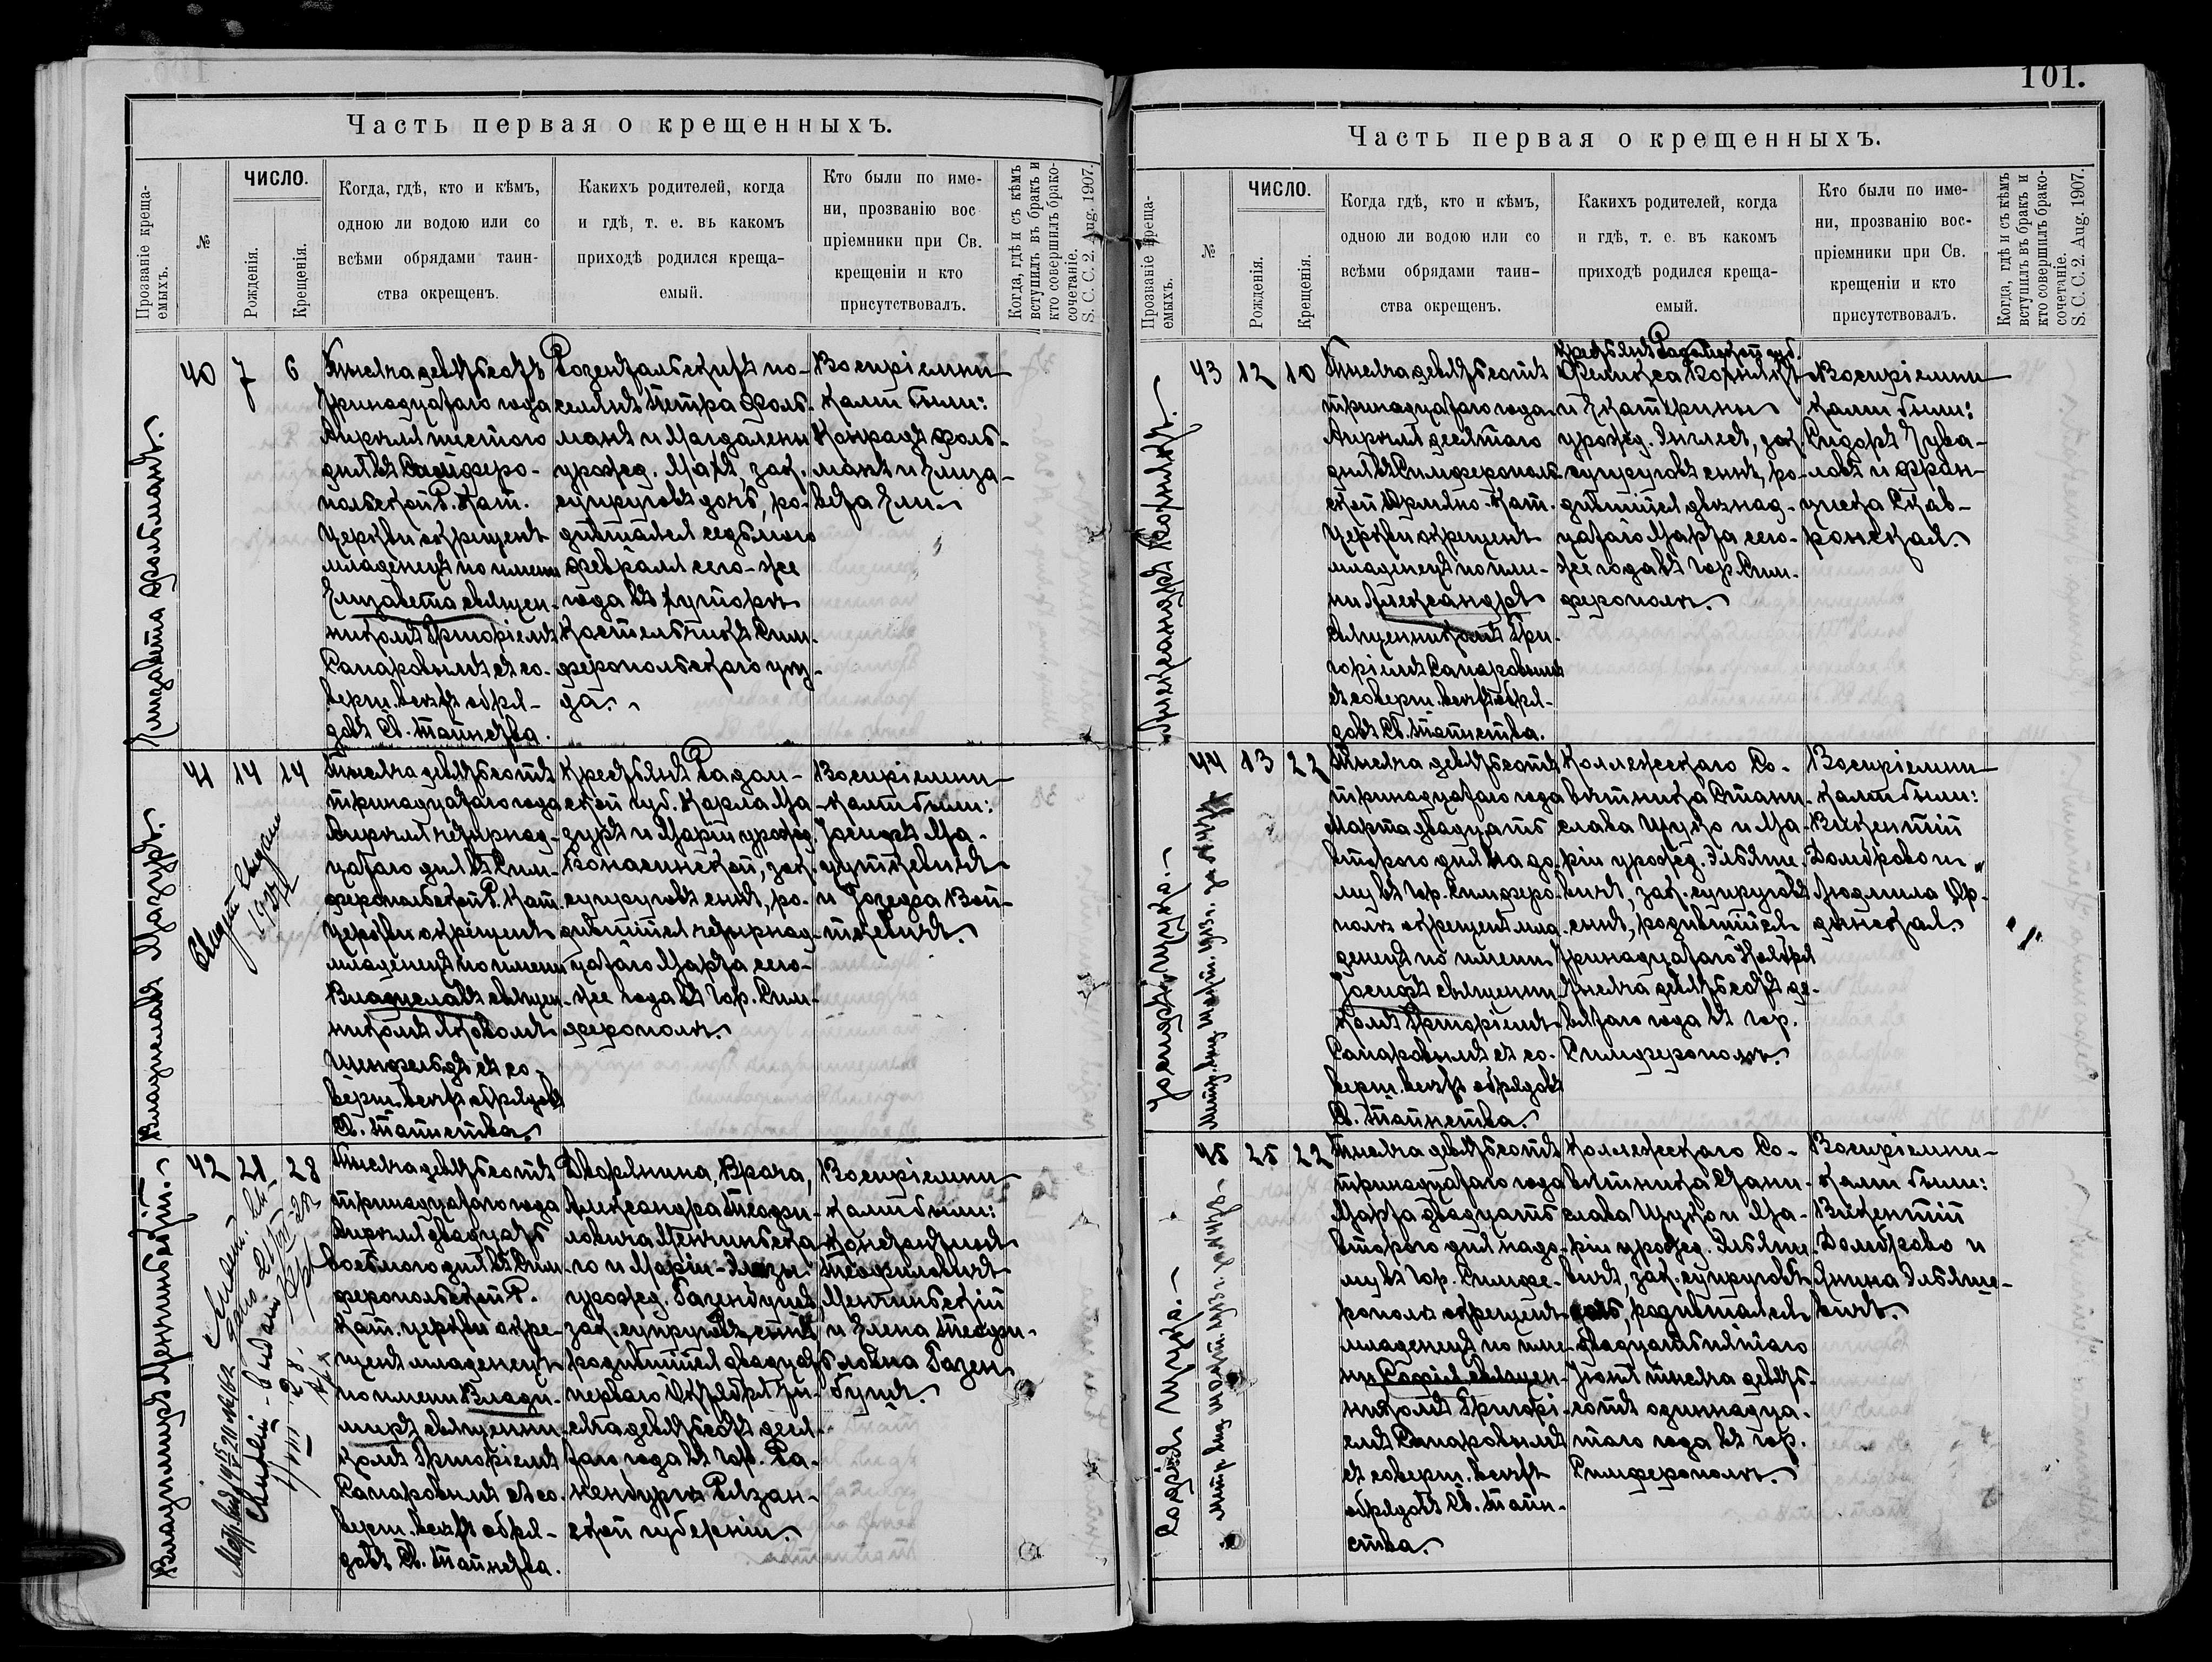 101.
Часть первая о крещенныхъ.
Прозваніе креща-
емыхъ.
№
ЧИСЛО.
Рожденія.
Крещенія.
Когда, гдѣ, кто и кѣмъ,
одною ли водою или со
всѣми обрядами таин-
ства окрещенъ.
Какихъ родителей, когда
и гдѣ, т. е. въ какомъ
приходѣ родился креща-
емый.
Кто были по име-
ни, прозванію вос
пріемники при Св.
крещеніи и кто
присутствовалъ.
Когда, гдѣ и съ кѣмъ
вступилъ въ бракъ и
кто совершилъ брако-
сочетаніе.
S. C. C. 2. Aug. 1907.
Елизавета Фольманъ.
40
7
6
Тысяча девятьсотъ
тринадцатаго года
Апрѣля шестого
дня въ Симферо-
польской Р. Кат.
церкви окрещенъ
младенецъ по имени
Елизавета священ-
никомъ Григоріемъ
Сапаровымъ съ со-
верш. всѣхъ обря-
довъ Св. Таинства.
Розентальскихъ по-
селянъ Петра Фоль-
манъ и Магдалены
урожд. Матъ, зак.
супруговъ дочь, ро-
дившаяся седьмого
Февраля сего-же
года въ хуторѣ
Костельникъ Сим-
феропольскаго уѣз-
да.
Воспріемни-
ками были:
Конрадъ Фоль-
манъ и Елиза-
вета Ели.
Владиславъ Мазуръ.
41
14
14
Тысяча девятьсотъ
тринадцатаго года
Апрѣля четырнад-
цатаго дня въ Сим-
феропольской Р. Кат.
церкви окрещенъ
младенецъ по имени
Владиславъ священ-
никомъ Яковомъ
Шенфельдъ съ со-
верш. всѣхъ обрядовъ
Св. Таинства.
Крестьянъ Радом-
ской губ. Карла Ма-
зуръ и Маріи урожд.
зак.
супруговъ сынъ, ро-
дившійся четырнад-
цатаго Марта сего-
же года въ гор. Сим-
ферополѣ.
Воспріемни-
ками были:
Іосифъ Ма-
цуткевичъ
и Іозефа Вой-
ткевичъ.
Владиміръ Менчинскій.
42
21
28
Тысяча девятьсотъ
тринадцатаго года
Апрѣля двадцать
восьмого дня въ Сим-
феропольской Р.
Кат. церкви окре-
щенъ младенецъ
по имени Влади-
міръ священни-
комъ Григоріемъ
Сапаровымъ съ со-
верш. всѣхъ обря-
довъ Св. Таинства.
Дворянина, Врача,
Александра Теофи-
ловича Менчинска-
го и Маріи-Элизы
урожд. Газенбушъ
зак. супруговъ сынъ
родившійся двадцать
перваго Октября ты-
сяча девятьсотъ деся-
таго года въ гор. Ра-
ненбургѣ Рязан-
ской губерніи.
Воспріемни-
ками были:
Константинъ
Теофиловичъ
Менчинскій
и Елена Теофи-
ловна Газен-
бушъ.
Часть первая о крещенныхъ.
Прозваніе креща-
емыхъ.
№
ЧИСЛО.
Рожденія.
Крещенія.
Когда гдѣ, кто и кѣмъ,
одною ли водою или со
всѣми обрядами таин-
ства окрещенъ.
Какихъ родителей, когда
и гдѣ, т. е. въ какомъ
приходѣ родился креща-
емый.
Кто были по име-
ни, прозванію вос-
пріемники при Св.
крещеніи и кто
присутствовалъ.
Когда, гдѣ и съ кѣмъ
вступилъ въ бракъ и
кто совершилъ брако-
сочетаніе.
S. C. C. 2. Aug. 1907.
Александръ Корнилукъ.
43
12
10
Тысяча девятьсотъ
тринадцатаго года
Апрѣля десятаго
дня въ Симферополь-
ской Армяно-Кат.
церкви окрещенъ
младенецъ по име-
ни Александръ
священникомъ Гри-
горіемъ Сапаровымъ
съ соверш. всѣхъ обря-
довъ Св. Таинства.
Крестьянъ Радомской губ.
Феликса
и Екатерины
урожд. Энглестъ, зак.
супруговъ сынъ, ро-
дившійся двѣнад-
цатаго Марта сего-
же года въ гор. Сим-
ферополѣ.
Воспріемни-
ками были:
Сидоръ Чува-
ловъ и Фран-
циска Скав-
ронская.
Іосифъ Щука.
44
13
22
Тысяча девятьсотъ
тринадцатаго года
Марта двадцать
второго дня на до-
му въ гор. Симферо-
полѣ окрещенъ мла-
денецъ по имени
Іосифъ священни-
комъ Григоріемъ
Сапаровымъ съ со-
верш. всѣхъ обрядовъ
Св. Таинства.
Коллежскаго Со-
вѣтника Стани-
слава Щуко и Ма-
ріи урожд. Эльяше-
вичъ, зак. супруговъ
сынъ, родившійся
тринадцатаго Ноября
тысяча девятьсотъ де-
вятаго года въ гор.
Симферополѣ.
Воспріемни-
ками были:
Викентій
Домброво и
Людмила Ор-
динская.
Софія Щука.
45
25
22
Тысяча девятьсотъ
тринадцатаго года
Марта двадцать
второго дня на до-
му въ гор. Симфе-
рополѣ окрещенъ
младенецъ по име-
ни Софія священ-
никомъ Григорі-
емъ Сапаровымъ
съ соверш. всѣхъ
обрядовъ Св. Таин-
ства.
Коллежскаго Со-
вѣтника Стани-
слава Щуко и Ма-
ріи урожд. Эльяше-
вичъ, зак. супруговъ
дочь, родившаяся
двадцать пятаго
Іюня тысяча девять-
сотъ одиннадца-
таго года въ гор.
Симферополѣ.
Воспріемни-
ками были:
Викентій
Домброво и
Янина Эльяше-
вичъ.